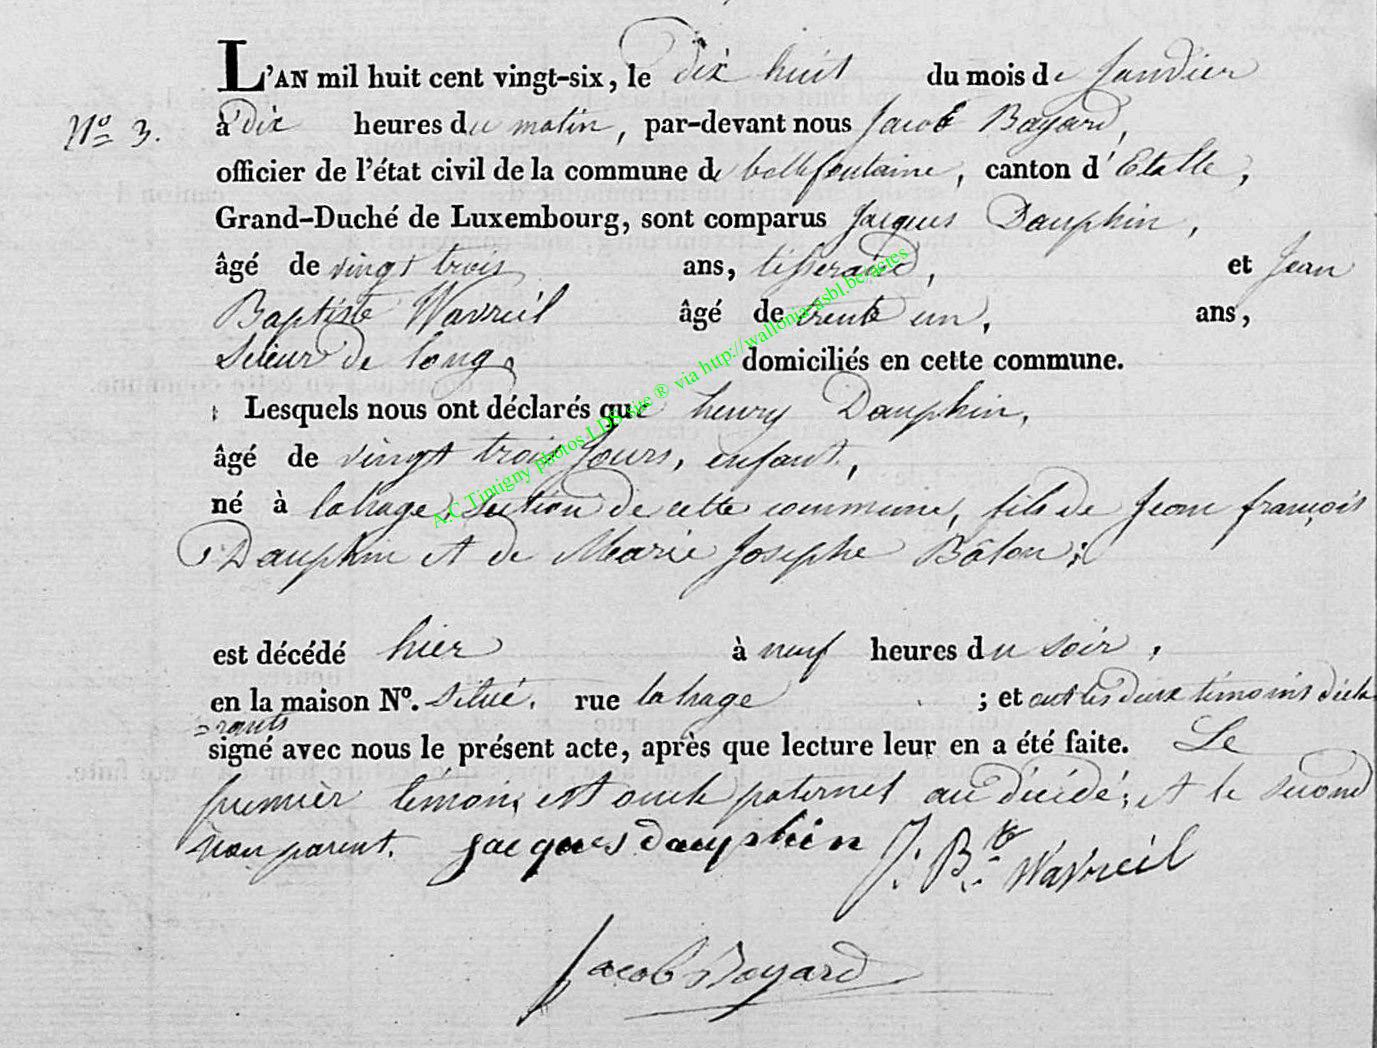 L'AN mil huit cent vingt-six, le dix huit du mois de Janvier
N° 3.
à dix heures du matin, par-devant nous Jacob Bayard,
officier de l'état civil de la commune de bellefontaine, canton d'Etalle,
Grand-Duché de Luxembourg, sont comparus Jacques Dauphin,
âgé de vingt trois ans, tisserand, et Jean
Baptiste Wavreil âgé de trente un, ans,
scieur de long, domiciliés en cette commune.
Lesquels nous ont déclarés que henry Dauphin,
âgé de vingt trois Jours, enfant,
né à lahage, section de cette commune, fils de Jean françois
Dauphin et de Marie Josephe Bâlon;
est décédé hier à neuf heures du soir,
en la maison N°. situé, rue lahage ; et ont les deux témoins décla
=rants
signé avec nous le présent acte, après que lecture leur en a été faite. Le
premier témoin est oncle paternel au décédé, et le second
non parent. jacques dauphin J. B.te Wavreil
Jacob Bayard
A.C Tintigny photos LDS site ® via http://wallonia-asbl.be/actes